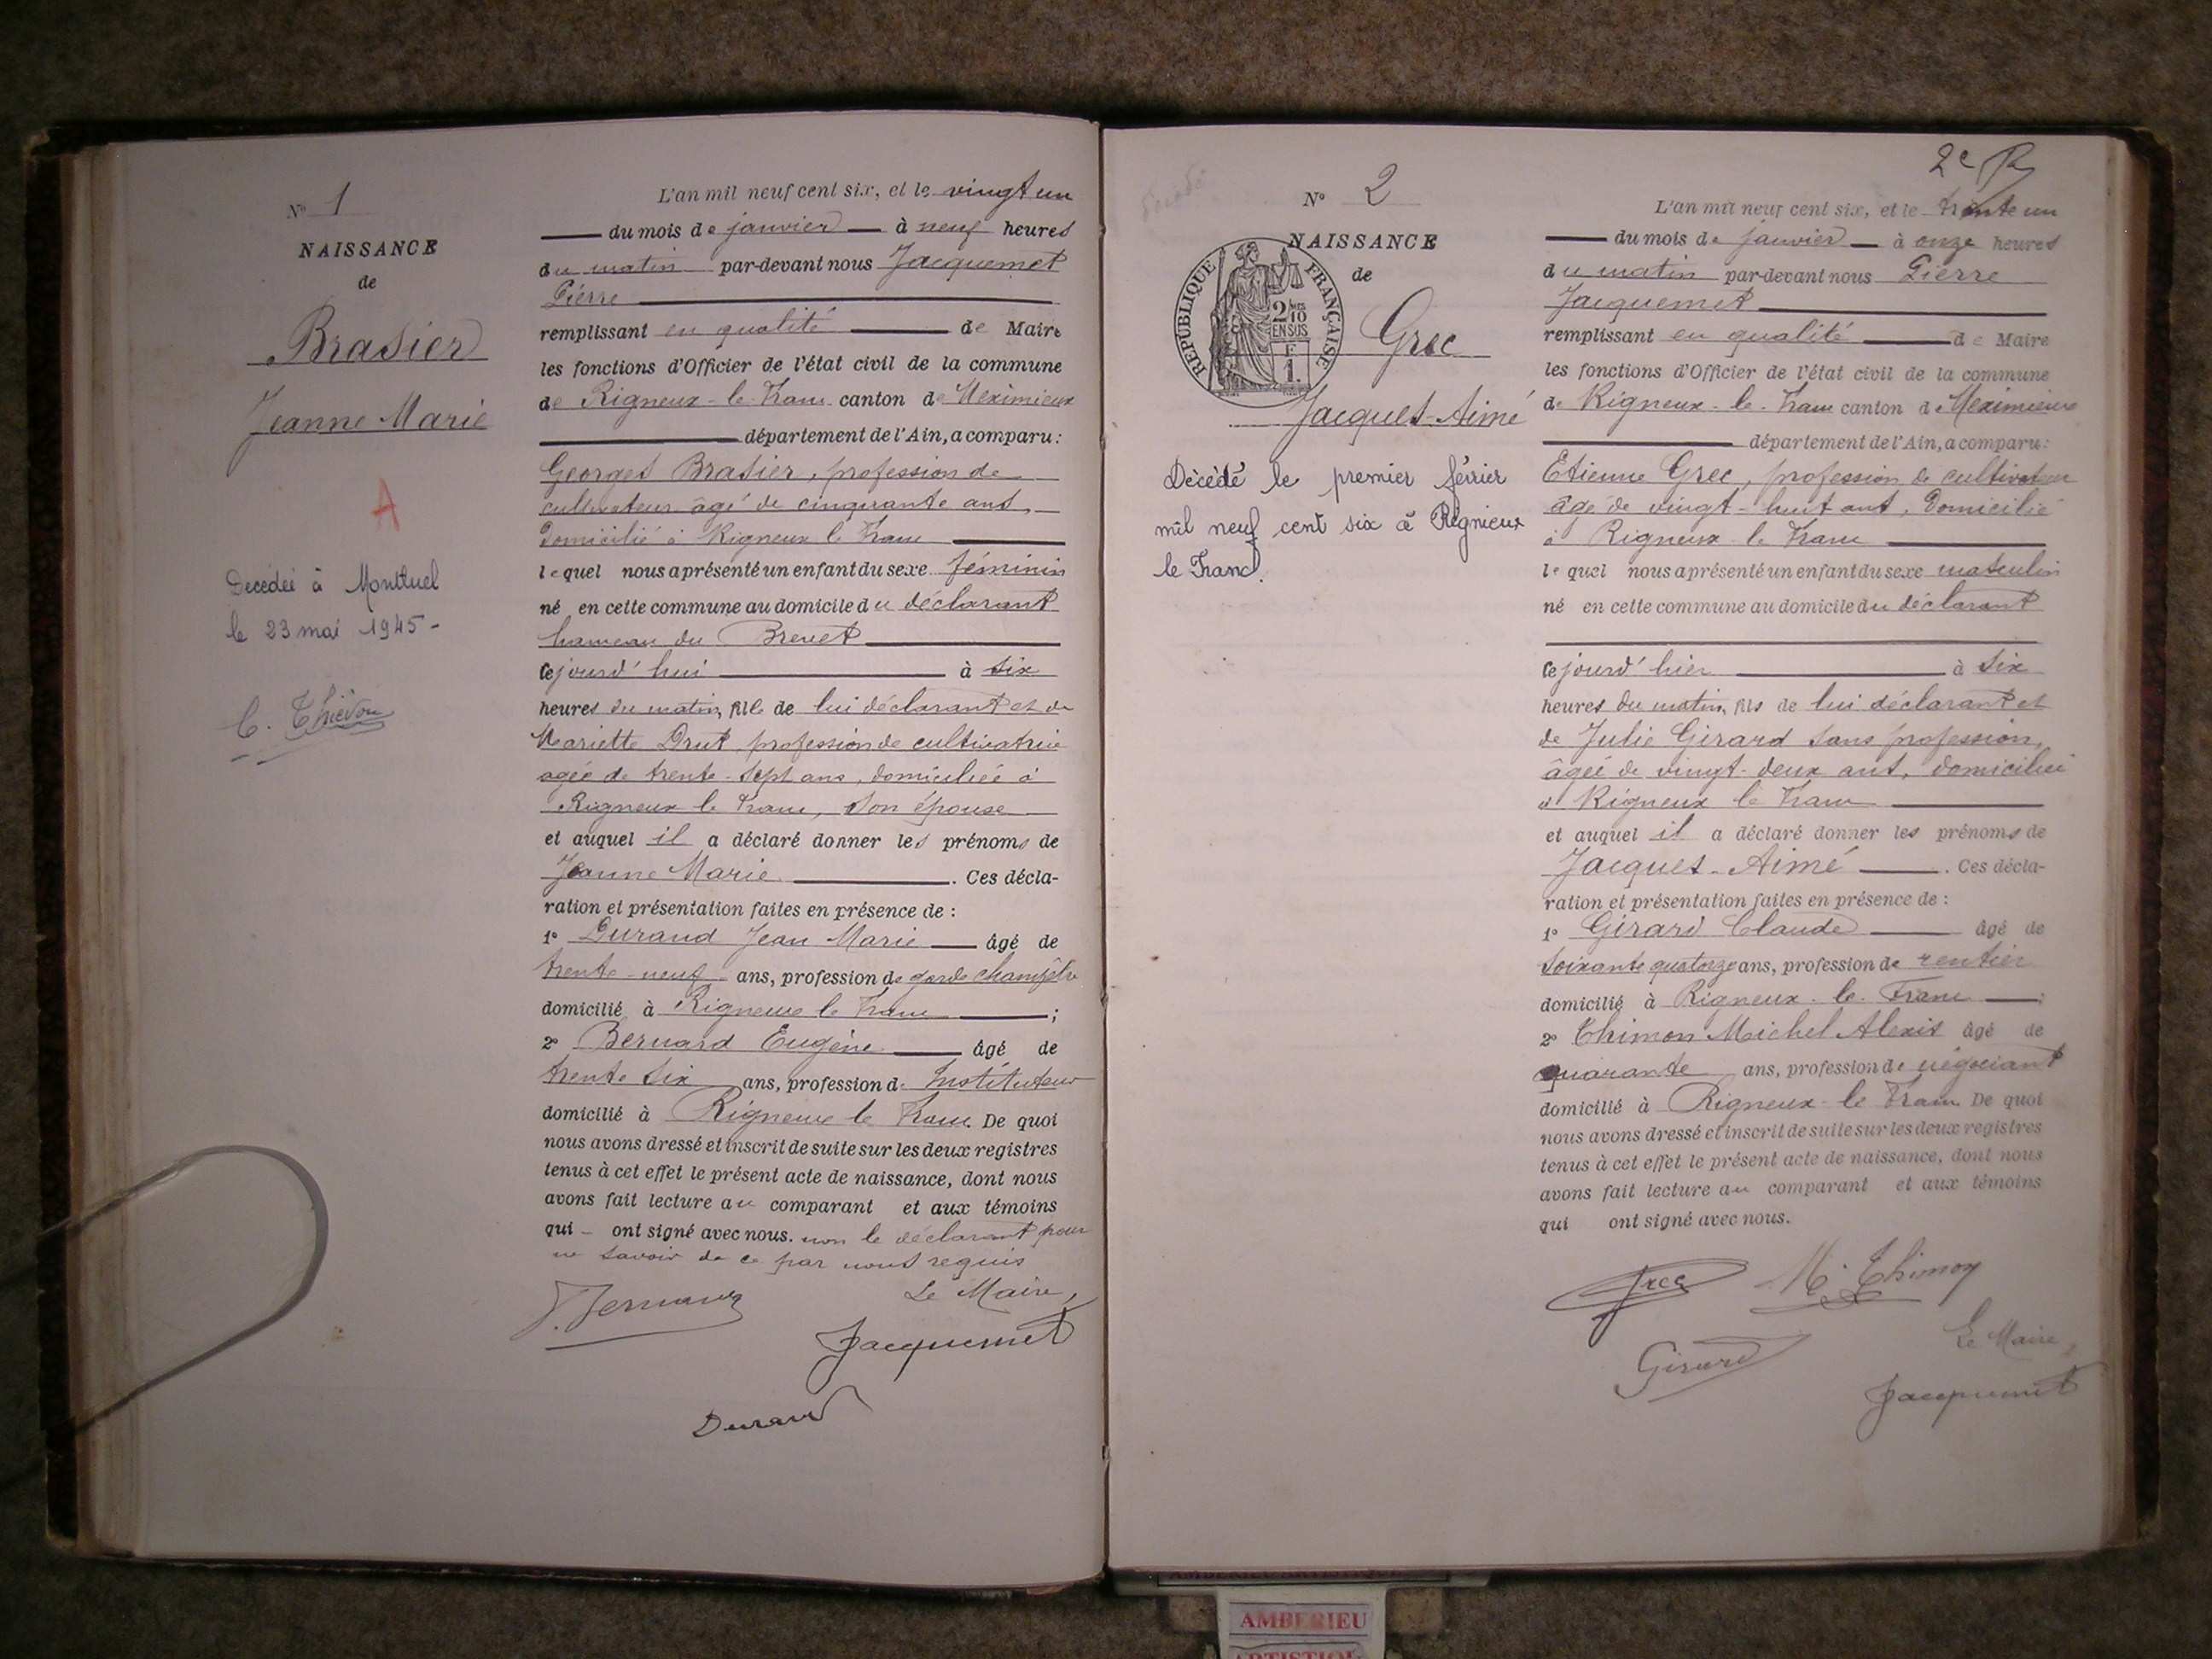 N° 1
NAISSANCE
de
Brasier
Jeanne Marie
A
Décédée à Montluel
le 23 mai 1945 -
C. Thiévon
L'an mil neuf cent six, et le vingt un
du mois de janvier à neuf heures
du matin par-devant nous Jacquemet
Pierre
remplissant en qualité de Maire
les fonctions d'Officier de l'état civil de la commune
de Rigneux-le-Franc canton de Meximieux
département de l'Ain, a comparu:
Georges Brasier, profession de
cultivateur âgé de cinquante ans,
domicilié à Rigneux le Franc
lequel nous a présenté un enfant du sexe féminin
né en cette commune au domicile du déclarant
hameau du Brevet
cejourd'hui à six
heures du matin, fille de lui déclarant et de
Mariette Drut, profession de cultivatrice
agée de trente-sept ans, domiciliée à
Rigneux le Franc, son épouse
et auquel il a déclaré donner les prénoms de
Jeanne Marie. Ces décla-
ration et présentation faites en présence de:
1° Durand Jean Marie âgé de
trente-neuf ans, profession de garde champêtre
domicilié à Rigneux le Franc;
2° Bernard Eugène âgé de
trente six ans, profession de Instituteur
domicilié à Rigneux le Franc. De quoi
nous avons dressé et inscrit de suite sur les deux registres
tenus à cet effet le présent acte de naissance, dont nous
avons fait lecture au comparant et aux témoins
qui - ont signé avec nous. non le déclarant pour
ne savoir de ce par nous requis
Bernard
Le Maire,
Jacquemet
Durand
2e R
N° 2
NAISSANCE
de
RÉPUBLIQUE FRANÇAISE
2/10
EN SUS
F
1.
Grec
Jacques-Aimé
Décédé le premier février
mil neuf cent six à Rignieux
le Franc.
L'an mil neuf cent six, et le trente un
du mois de janvier à onze heures
du matin par-devant nous Pierre
Jacquemet
remplissant en qualité de Maire
les fonctions d'Officier de l'état civil de la commune
de Rigneux-le-Franc canton de Meximieux
département de l'Ain, a comparu:
Etienne Grec, profession de cultivateur
âgé de vingt-huit ans, domicilié
à Rigneux le Franc
lequel nous a présenté un enfant du sexe masculin
né en cette commune au domicile du déclarant
cejourd'hier à six
heures du matin, fils de lui déclarant et
de Julie Girard sans profession,
âgée de vingt-deux ans, domiciliée
à Rigneux le Franc
et auquel il a déclaré donner les prénoms de
Jacques-Aimé. Ces décla-
ration et présentation faites en présence de:
1° Girard Claude âgé de
soixante quatorze ans, profession de rentier
domicilié à Rigneux-le-Franc;
2° Thimon Michel Alexis âgé de
quarante ans, profession de négociant
domicilié à Rigneux-le Franc. De quoi
nous avons dressé et inscrit de suite sur les deux registres
tenus à cet effet le présent acte de naissance, dont nous
avons fait lecture au comparant et aux témoins
qui ont signé avec nous.
Grec M. Thimon
Girard
Le Maire,
Jacquemet
AMBERIEU ARTISTIQUE
AMBERIEU
ARTISTIQ